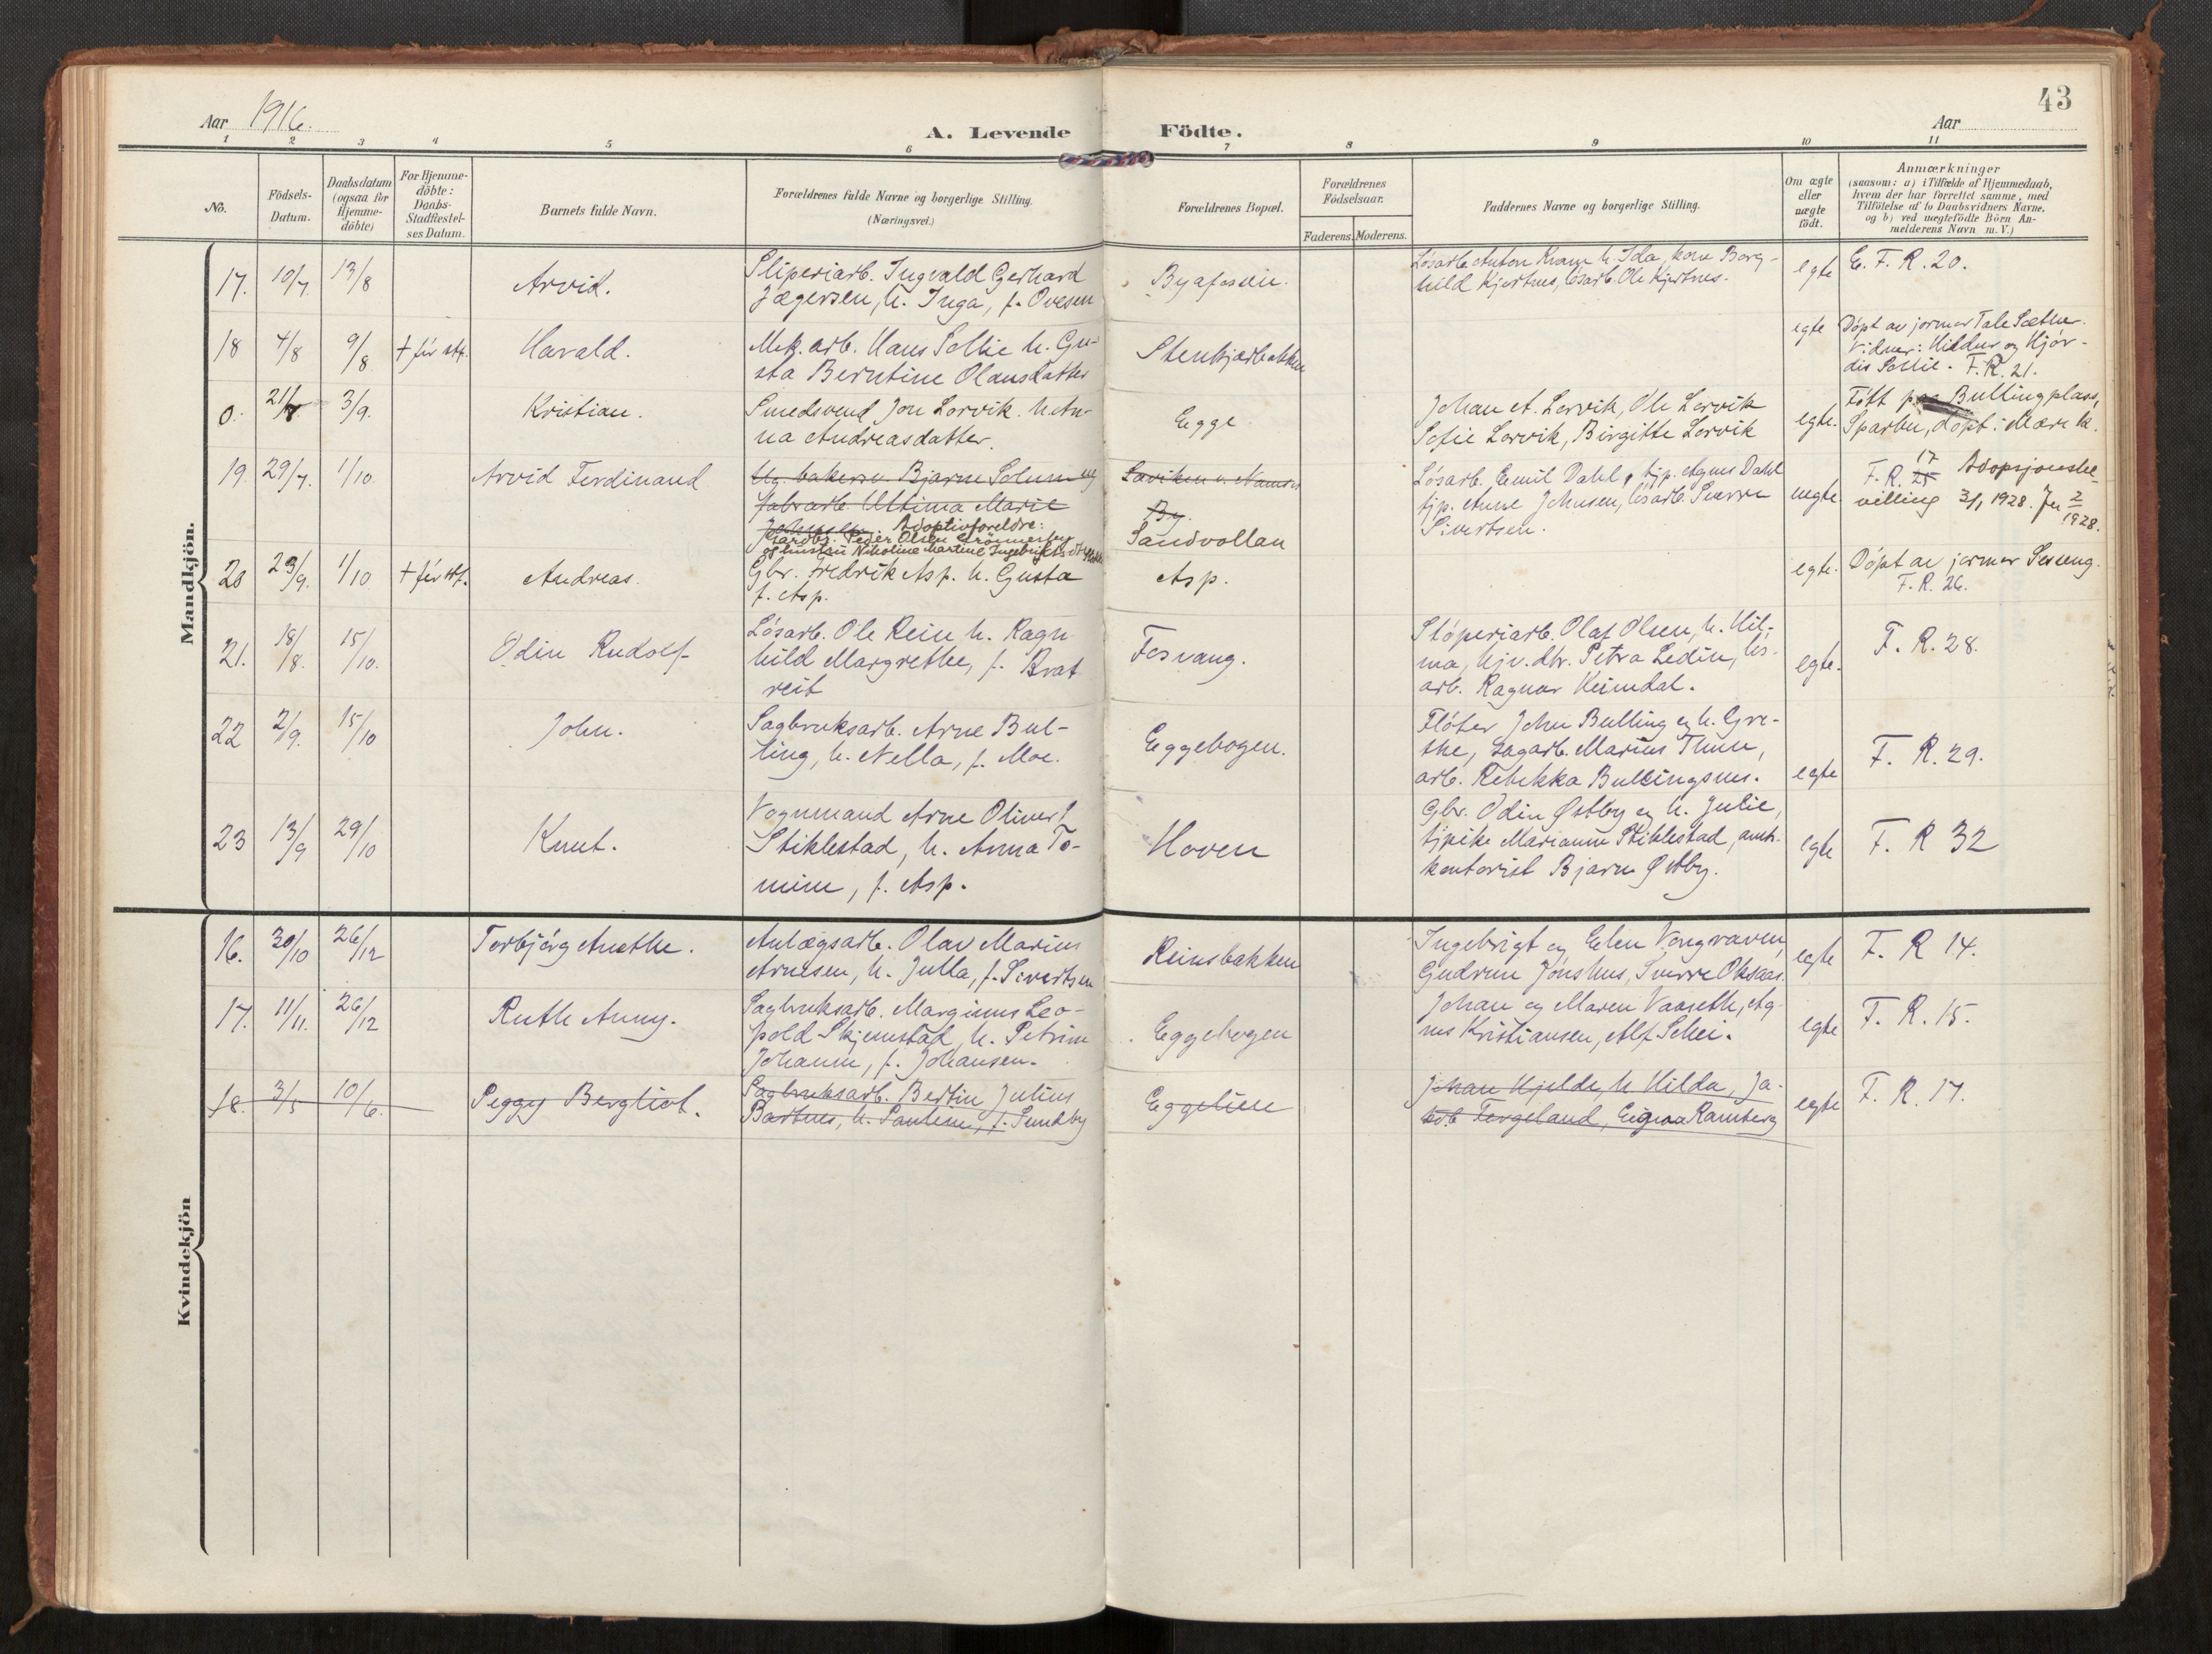 Aar 1916.
A. Levende Födte.
43
Aar
1 2 3 4 5 6 7 8 9 10 11
No.
Födsels-
Datum.
Daabsdatum
(ogsaa for
Hjemme-
döbte)
For Hjemme-
döbte:
Daabs-
Stadfæstel-
ses Datum.
Barnets fulde Navn.
Forældrenes fulde Navne og borgerlige Stilling.
(Næringsvei.)
Forældrenes Bopæl.
Forældrenes
Födselsaar.
Faderens. Moderens.
Faddernes Navne og borgerlige Stilling.
Om ægte
eller
uægte
födt.
Anmærkninger
(saasom: a) i Tilfælde af Hjemmedaab,
hvem der har forrettet samme, med
Tilföielse af to Daabsvidners Navne,
og b) ved uægtefödte Börn An-
melderens Navn m. V.)
Mandkjön.
17. 10/7. 13/8
Arvid.
Sliperiarb. Ingvald Gerhard
Jægersen, h. Inga, f. Ovesen
Byafossen.
Lósarb. Anton Kvam h. Ida, kone Borg-
hild Kjertnes, lósarb. Ole Kjertnes.
egte
E. F. R. 20.
18 4/8 9/8 † fór stf.
Harald.
Mek. arb. Hans Sellie h. Gu-
sta Berntine Olausdatter
Stenkjærbakken
egte
Dópt av jormor Tale Sæther.
Vidner: Hildur og Hjór-
dis Sellie. F. R. 21.
0. 21/7 3/9.
Kristian.
Smedsvend Jon Lorvik. h. An-
na Andreasdatter.
Egge
Johan A. Lorvik, Ole Lorvik
Sofie Lorvik, Birgitte Lorvik
egte.
Fótt paa Bullingplass,
Sparbu, dópt i Mære k.
19. 29/7. 1/10
Arvid Ferdinand
Ug. bakersv. Bjarne Solum og
fabrarb. Ultima Marie
Adoptivforeldre:
Peder Olsen
og hustru Nikoline Martine
Laviken v. Namsos
By.
Sandvollan
Lósarb. Emil Dahl, tjp. Agnes Dahl
tjp. Anne Johnsen, lósarb. Sverre
Sivertsen.
uegte
17
F. R. 25 Adopsjonsbe-
villing 3/1 1928. Jnr 2
1928.
20 23/9. 1/10 † fór stf.
Andreas.
Gbr. Fredrik Asp. h. Gusta
f. Asp.
Asp.
egte.
Dópt av jormor Seveng.
F. R. 26.
21. 18/8. 15/10.
Odin Rudolf
Lósarb. Ole Rein h. Ragn-
hild Margrethe, f. Brat
reit
Fosvang.
Stóperiarb. Olaf Olsen, h. Hil-
ma, hjv. dtr. Petra Ledin, lós-
arb. Ragnar Heimdal.
egte.
F. R. 28.
22 2/9. 15/10
John.
Sagbruksarb. Arne Bul-
ling, h. Nella, f. Moe.
Eggebogen.
Flóter John Bulling og h. Gre-
the, sagarb. Marius Thun,
arb. Rebekka Bullingsnes.
egte
F. R. 29.
23 13/9 29/10
Knut.
Vognmand Arne Oliver
Stiklestad, h. Anna To-
mine, f. Asp.
Hoven
Gbr. Odin Østby og h. Julie,
tjpike Marianne Stiklestad, amts-
kontorist Bjarne Østby.
egte
F. R 32
Kvindekjön
16. 30/10 26/12
Torbjórg Anethe.
Anlægsarb. Olav Marius
Arnesen, h. Julla, f. Sivertsen
Reinsbakken
Ingebrigt og Elen Vongraven,
Gudrun Jónshus, Sverre Oksaas.
egte
F. R 14.
17. 11/11. 26/12
Ruth Anny.
Sagbruksarb. Marginus Leo-
pold Skjemstad, h. Petrine
Johanne, f. Johansen.
Eggebogen
Johan og Maren Vaaseth, Ag-
nes Kristiansen, Alf Schei.
egte
F. R. 15.
18. 3/5 10/6.
Peggy Bergliot.
Sagbruksarb. Bertin Julius
Bartnes, h. Pauline, f. Sundby
Eggelien
Johan Hjelde, h Hilda, Ja-
kob Forgeland, Eigvaa Ramberg
egte
F. R. 17.